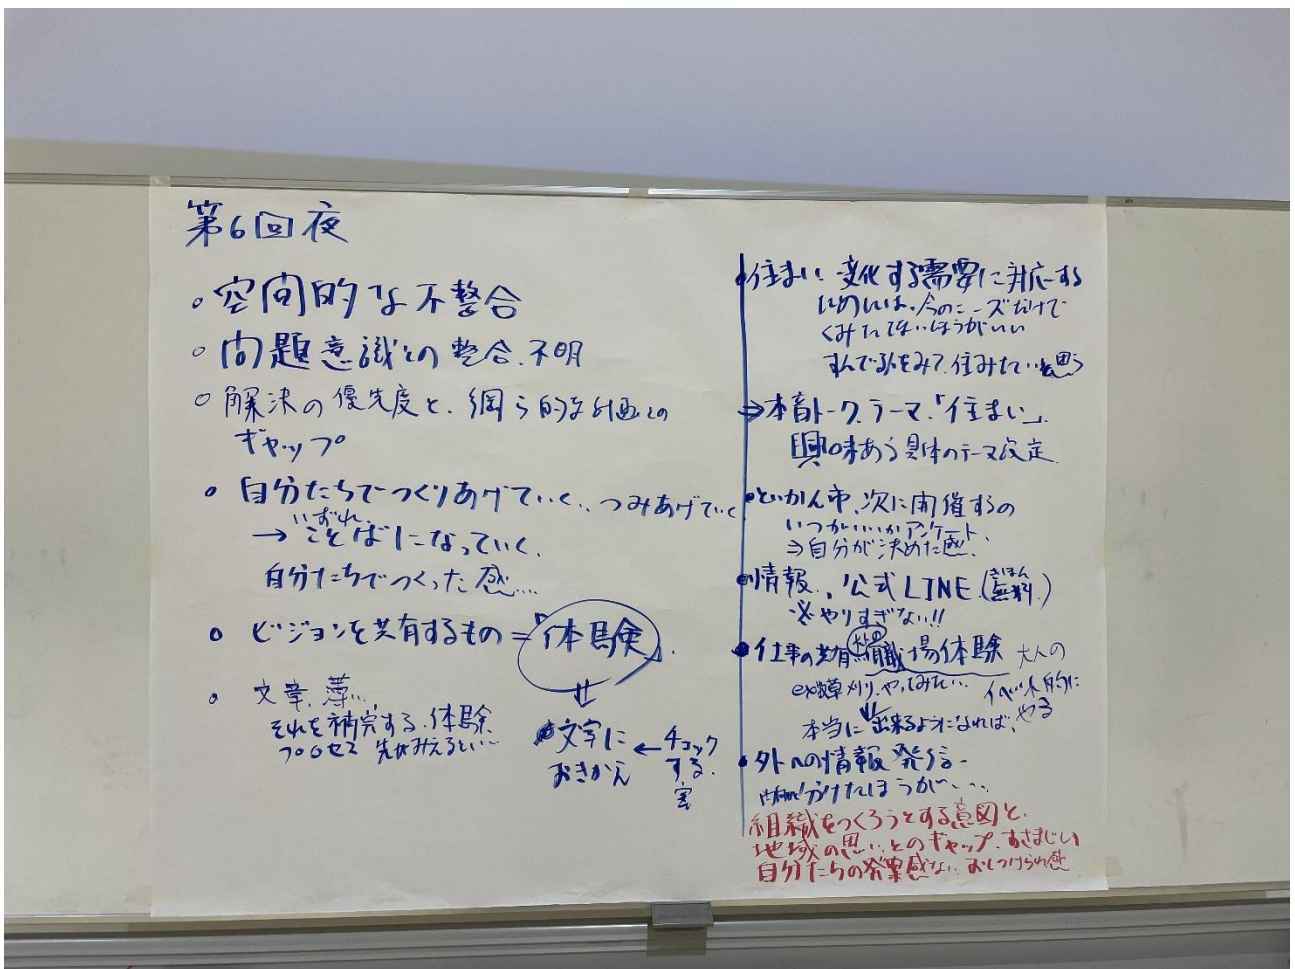 第6回夜
○空間的な不整合
○問題意識との整合、不明
○解決の優先度と、網ら的な計画との
ギャップ
○自分たちでつくりあげていく、つみあげていく
いずれ
→ことばになっていく、
自分たちでつくった感…
○ビジョンを共有するもの=「体験」
⇓
○文章、薄い、
それを補完する、体験、
プロセス 先がみえるといい…
●文字に ← チェック
おきかえ する、
害
●住まい 変化する需要に対応する
ためには、今のニーズだけで
くみたてないほうがいい
すんでる人をみて、住みたいと思う
⇒本音トーク、テーマ、「住まい」、
興味ある具体のテーマ設定
●といかん市、次に開催するの
いつがいいかアンケート、
⇒自分が決めた感、
●情報、公式LINE、(きほん無料)
※やりすぎない!!
●仕事の共有 大人の職場体験 大人の
ex)草メリ、やってみたい… イベント的に
やる
⇓
本当に出来るようになれば、
●外への情報発信
分けたほうが…
組織をつくろうとする意図と、
地域の思いとのギャップ、すさまじい
自分たちの発案感ない、おしつけられ感